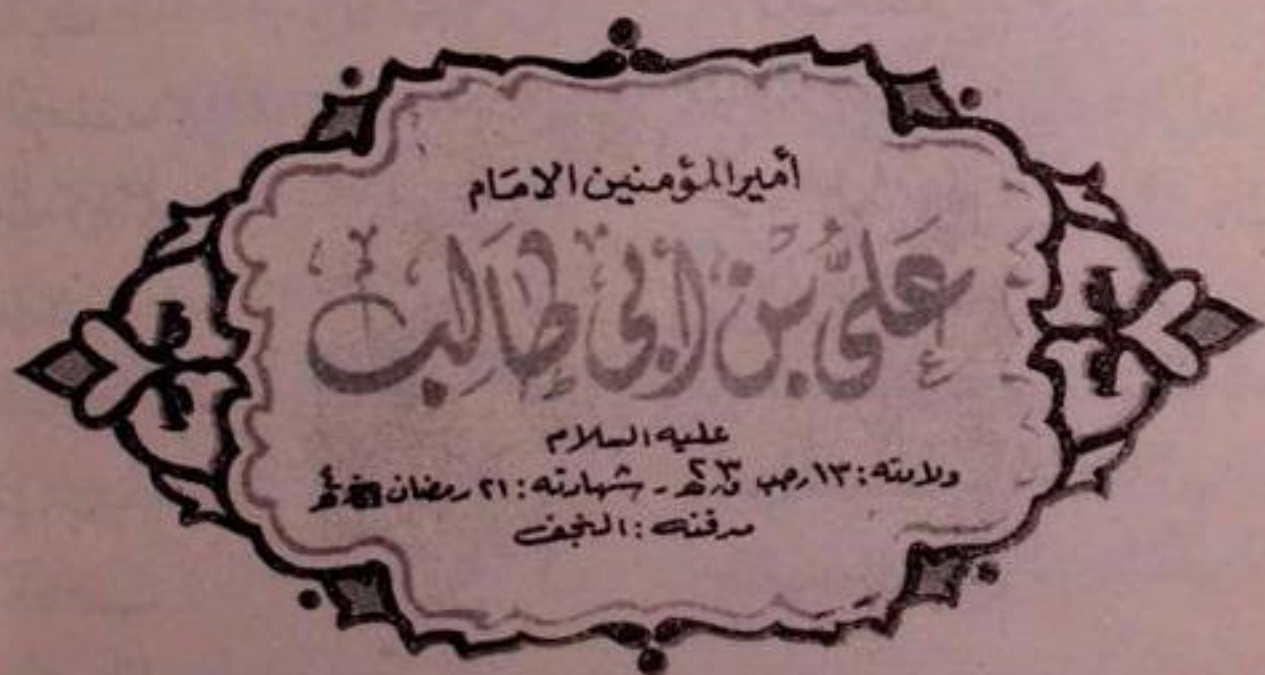 أمير المؤمنين الامام
عَليُّ بْن أَبي طَالِب
عليه السلام
ولادته: ١٣ رجب ٢٣ ق.ھ - شهادته: ٢١ رمضان
مدفنه: النجف